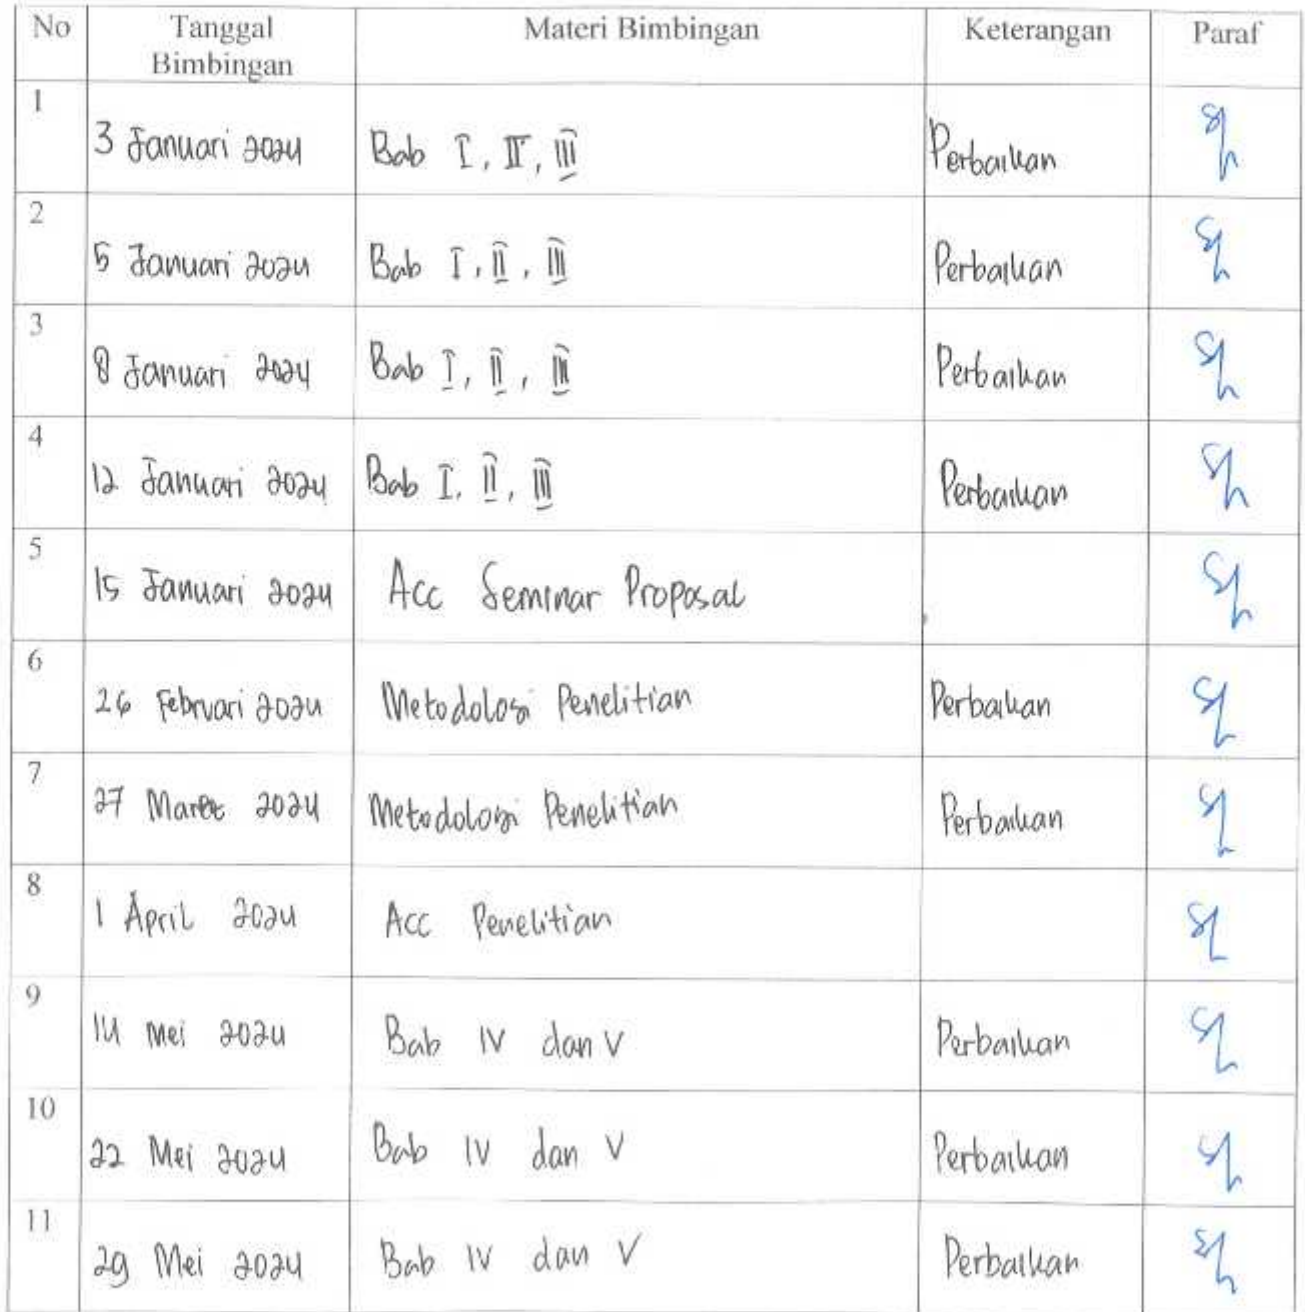 No Tanggal Bimbingan Materi Bimbingan Keterangan Paraf
1 3 Januari 2024 Bab I, II, III Perbaikan
2 5 Januari 2024 Bab I, II, III Perbaikan
3 8 Januari 2024 Bab I, II, III Perbaikan
4 12 Januari 2024 Bab I, II, III Perbaikan
5 15 Januari 2024 Acc Seminar Proposal
6 26 Februari 2024 Metodologi Penelitian Perbaikan
7 27 Maret 2024 Metodologi Penelitian Perbaikan
8 1 April 2024 Acc Penelitian
9 14 Mei 2024 Bab IV dan V Perbaikan
10 22 Mei 2024 Bab IV dan V Perbaikan
11 29 Mei 2024 Bab IV dan V Perbaikan